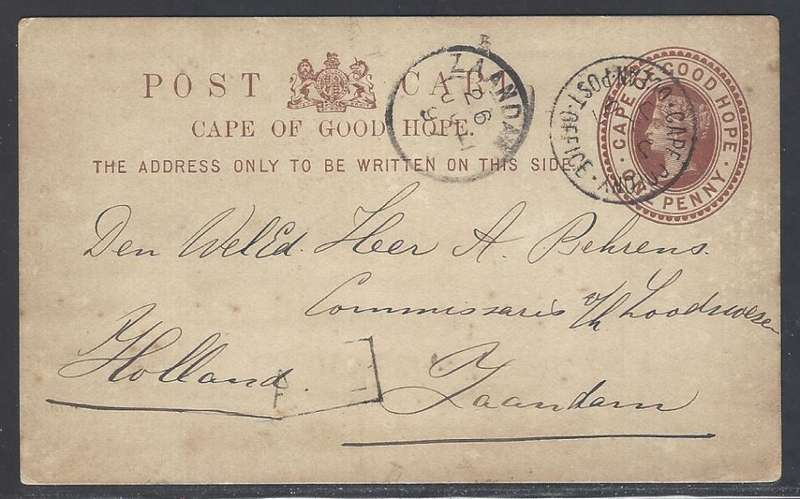 POST CARD
CAPE OF GOOD HOPE.
THE ADDRESS ONLY TO BE WRITTEN ON THIS SIDE.
ZAANDAM
CAPE OF GOOD HOPE
ONE PENNY
POST·OFFICE
CAPE COLONY
Den WelEd. Heer A. Behrens.
Commissaris v/h Loodswesen
Holland.
Zaandam